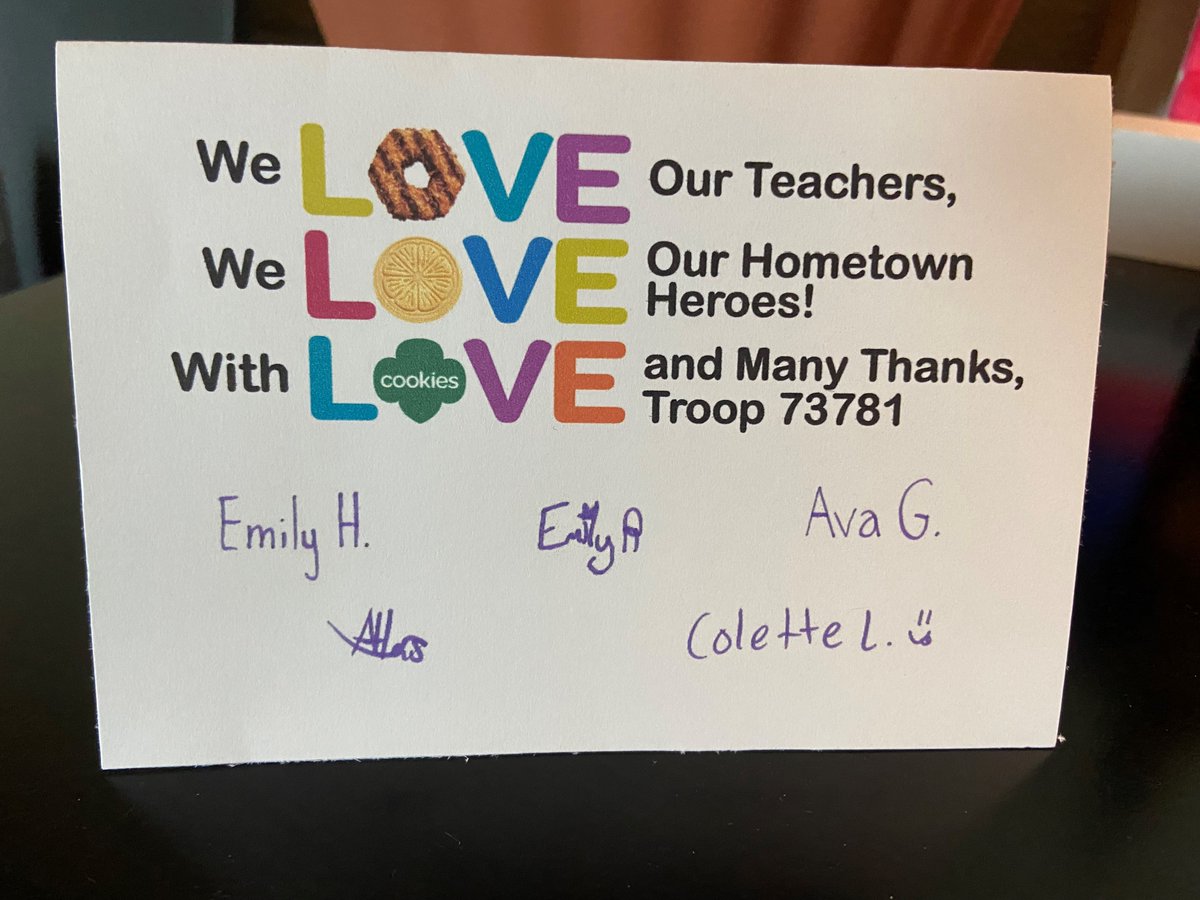 We LOVE Our Teachers,
We LOVE Our Hometown
Heroes!
With LOVE and Many Thanks,
cookies
Troop 73781
Emily H. Emily A Ava G.
Colette L.